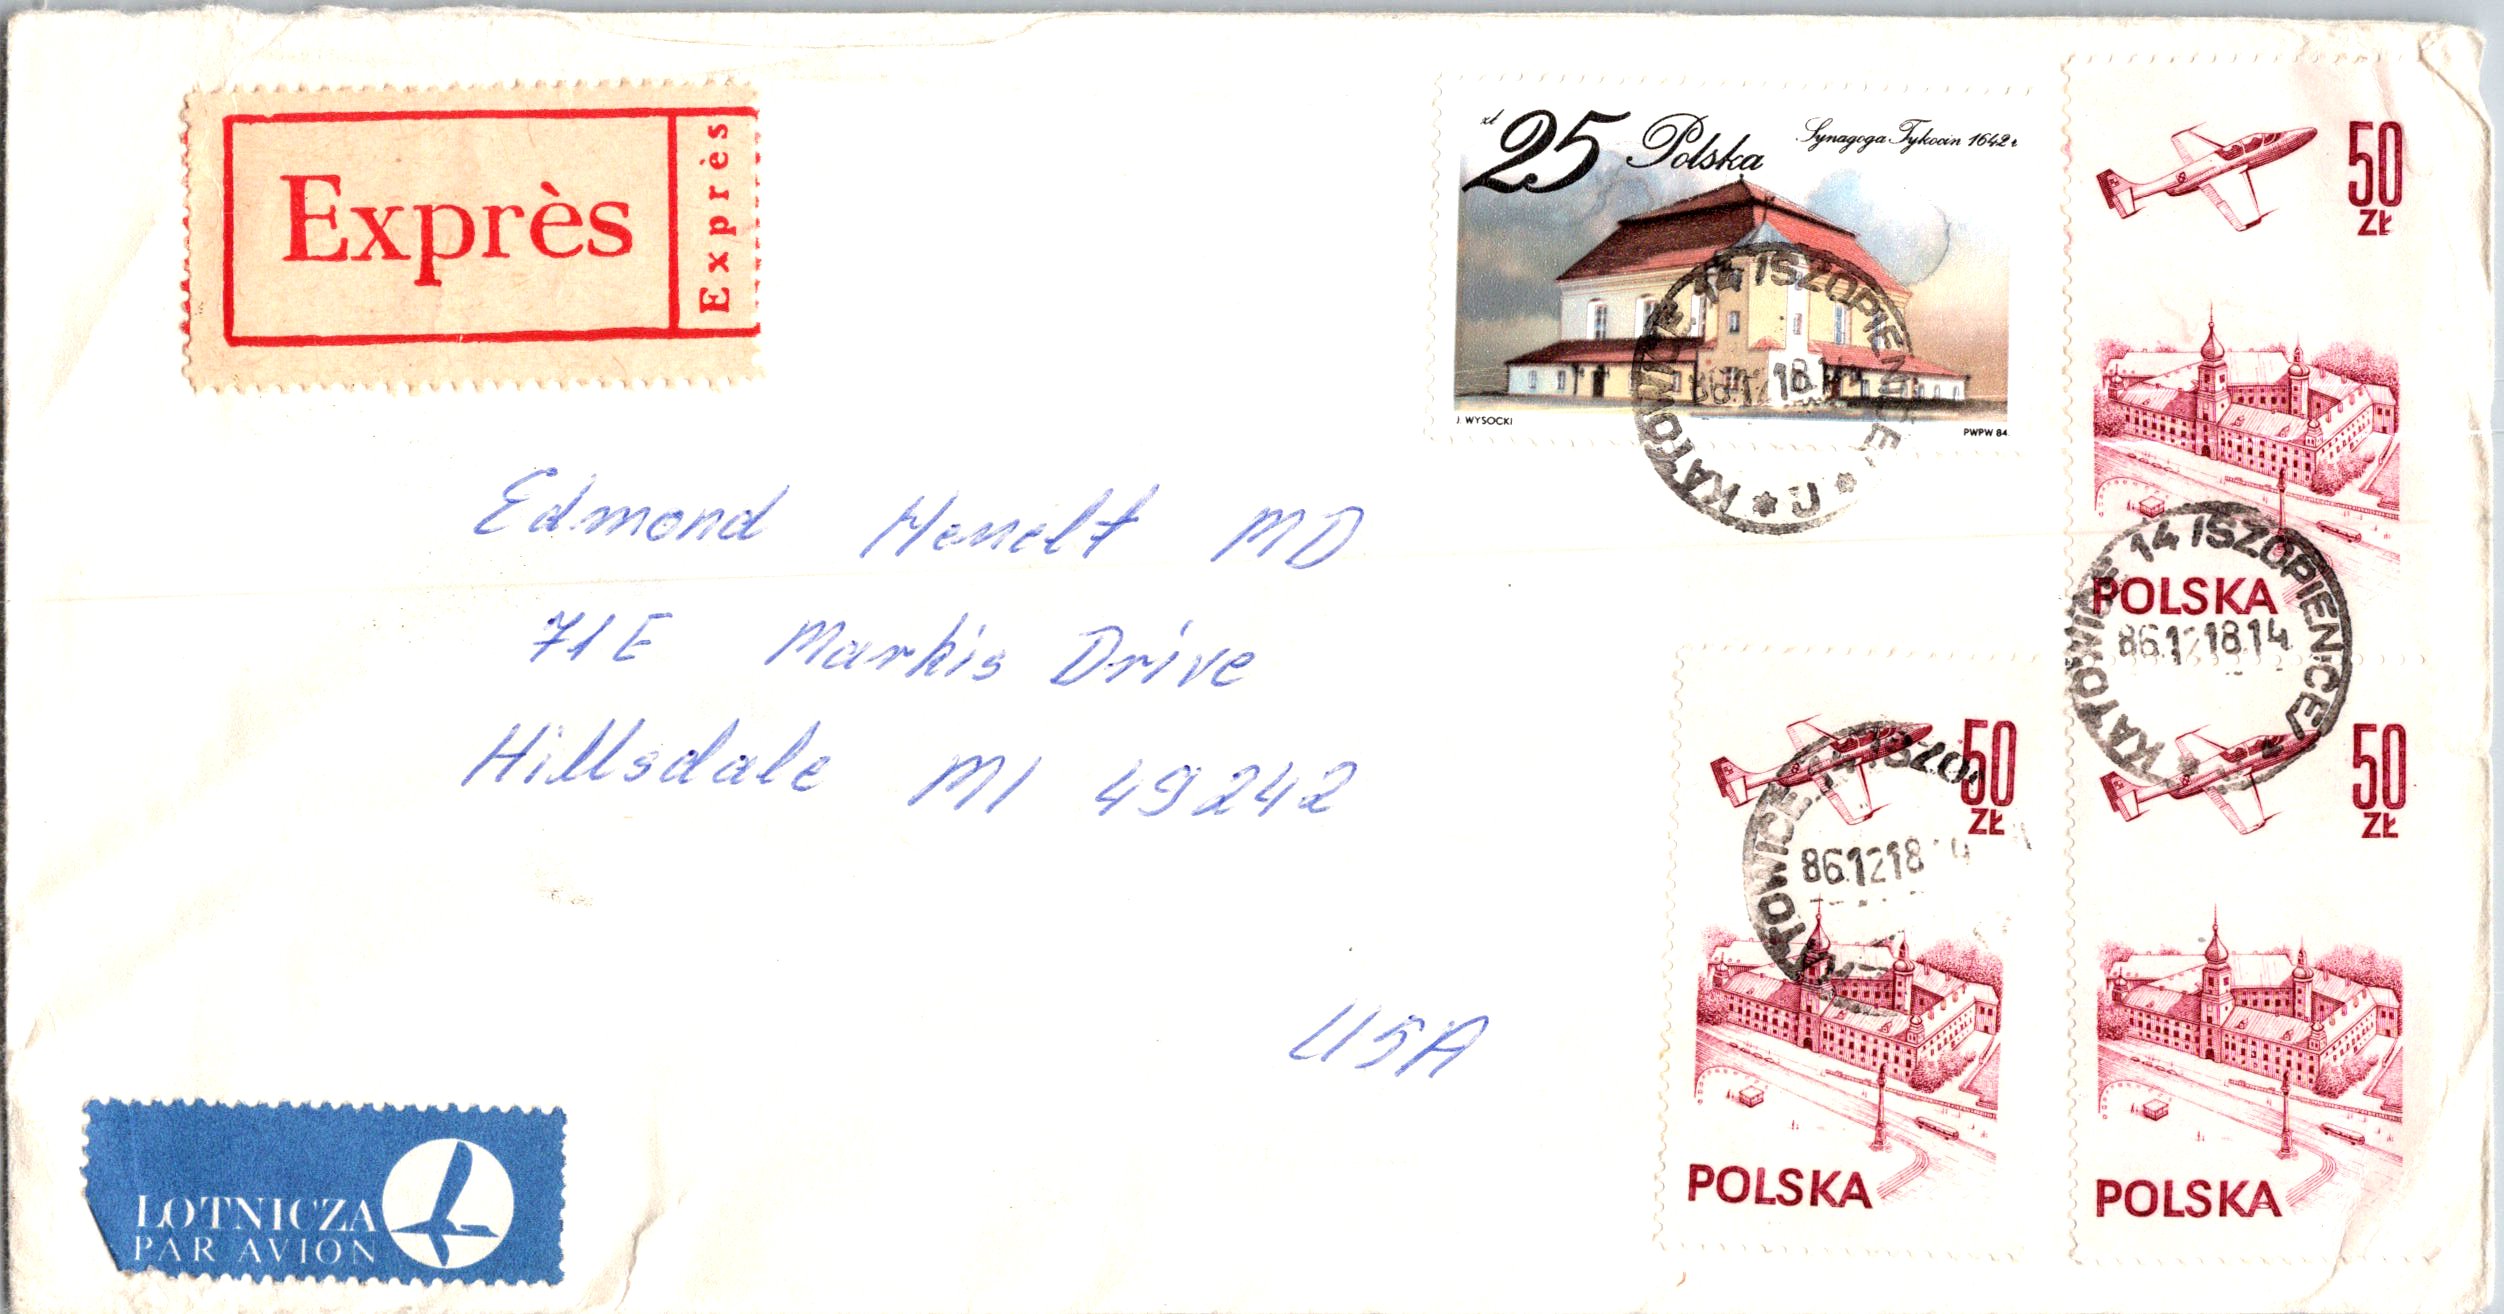 Exprès
Exprès
zł 25 Polska
Synagoga Tykocin 1642 r
J. WYSOCKI
PWPW 84.
KATOWICE 14 /SZOPIENICE/
86.12.18.14
* U *
50
ZŁ
POLSKA
KATOWICE 14 /SZOPIENICE/
86.12.18.14
Edmond MD
71E Markis Drive
Hillsdale MI 49242
USA
50
ZŁ
POLSKA
KATOWICE 14 /SZO
86.12.18 14
50
ZŁ
POLSKA
LOTNICZA
PAR AVION